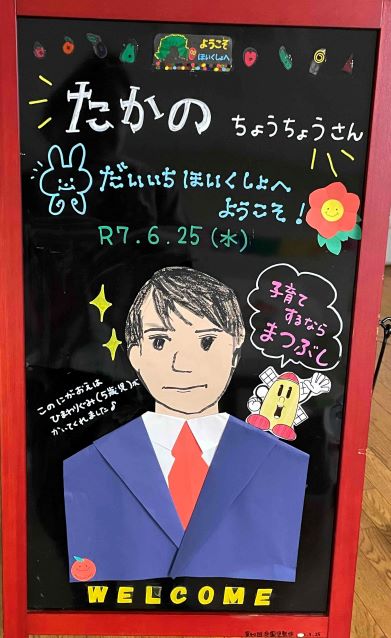 ようこそ
ほいくしょへ
たかの ちょうちょうさん
だいいち ほいくしょへ
ようこそ！
R7.6.25(水)
子育て
するなら
まつぶし
このにがおえは
ひまわりぐみ(5歳児)が
かいてくれました♪
WELCOME